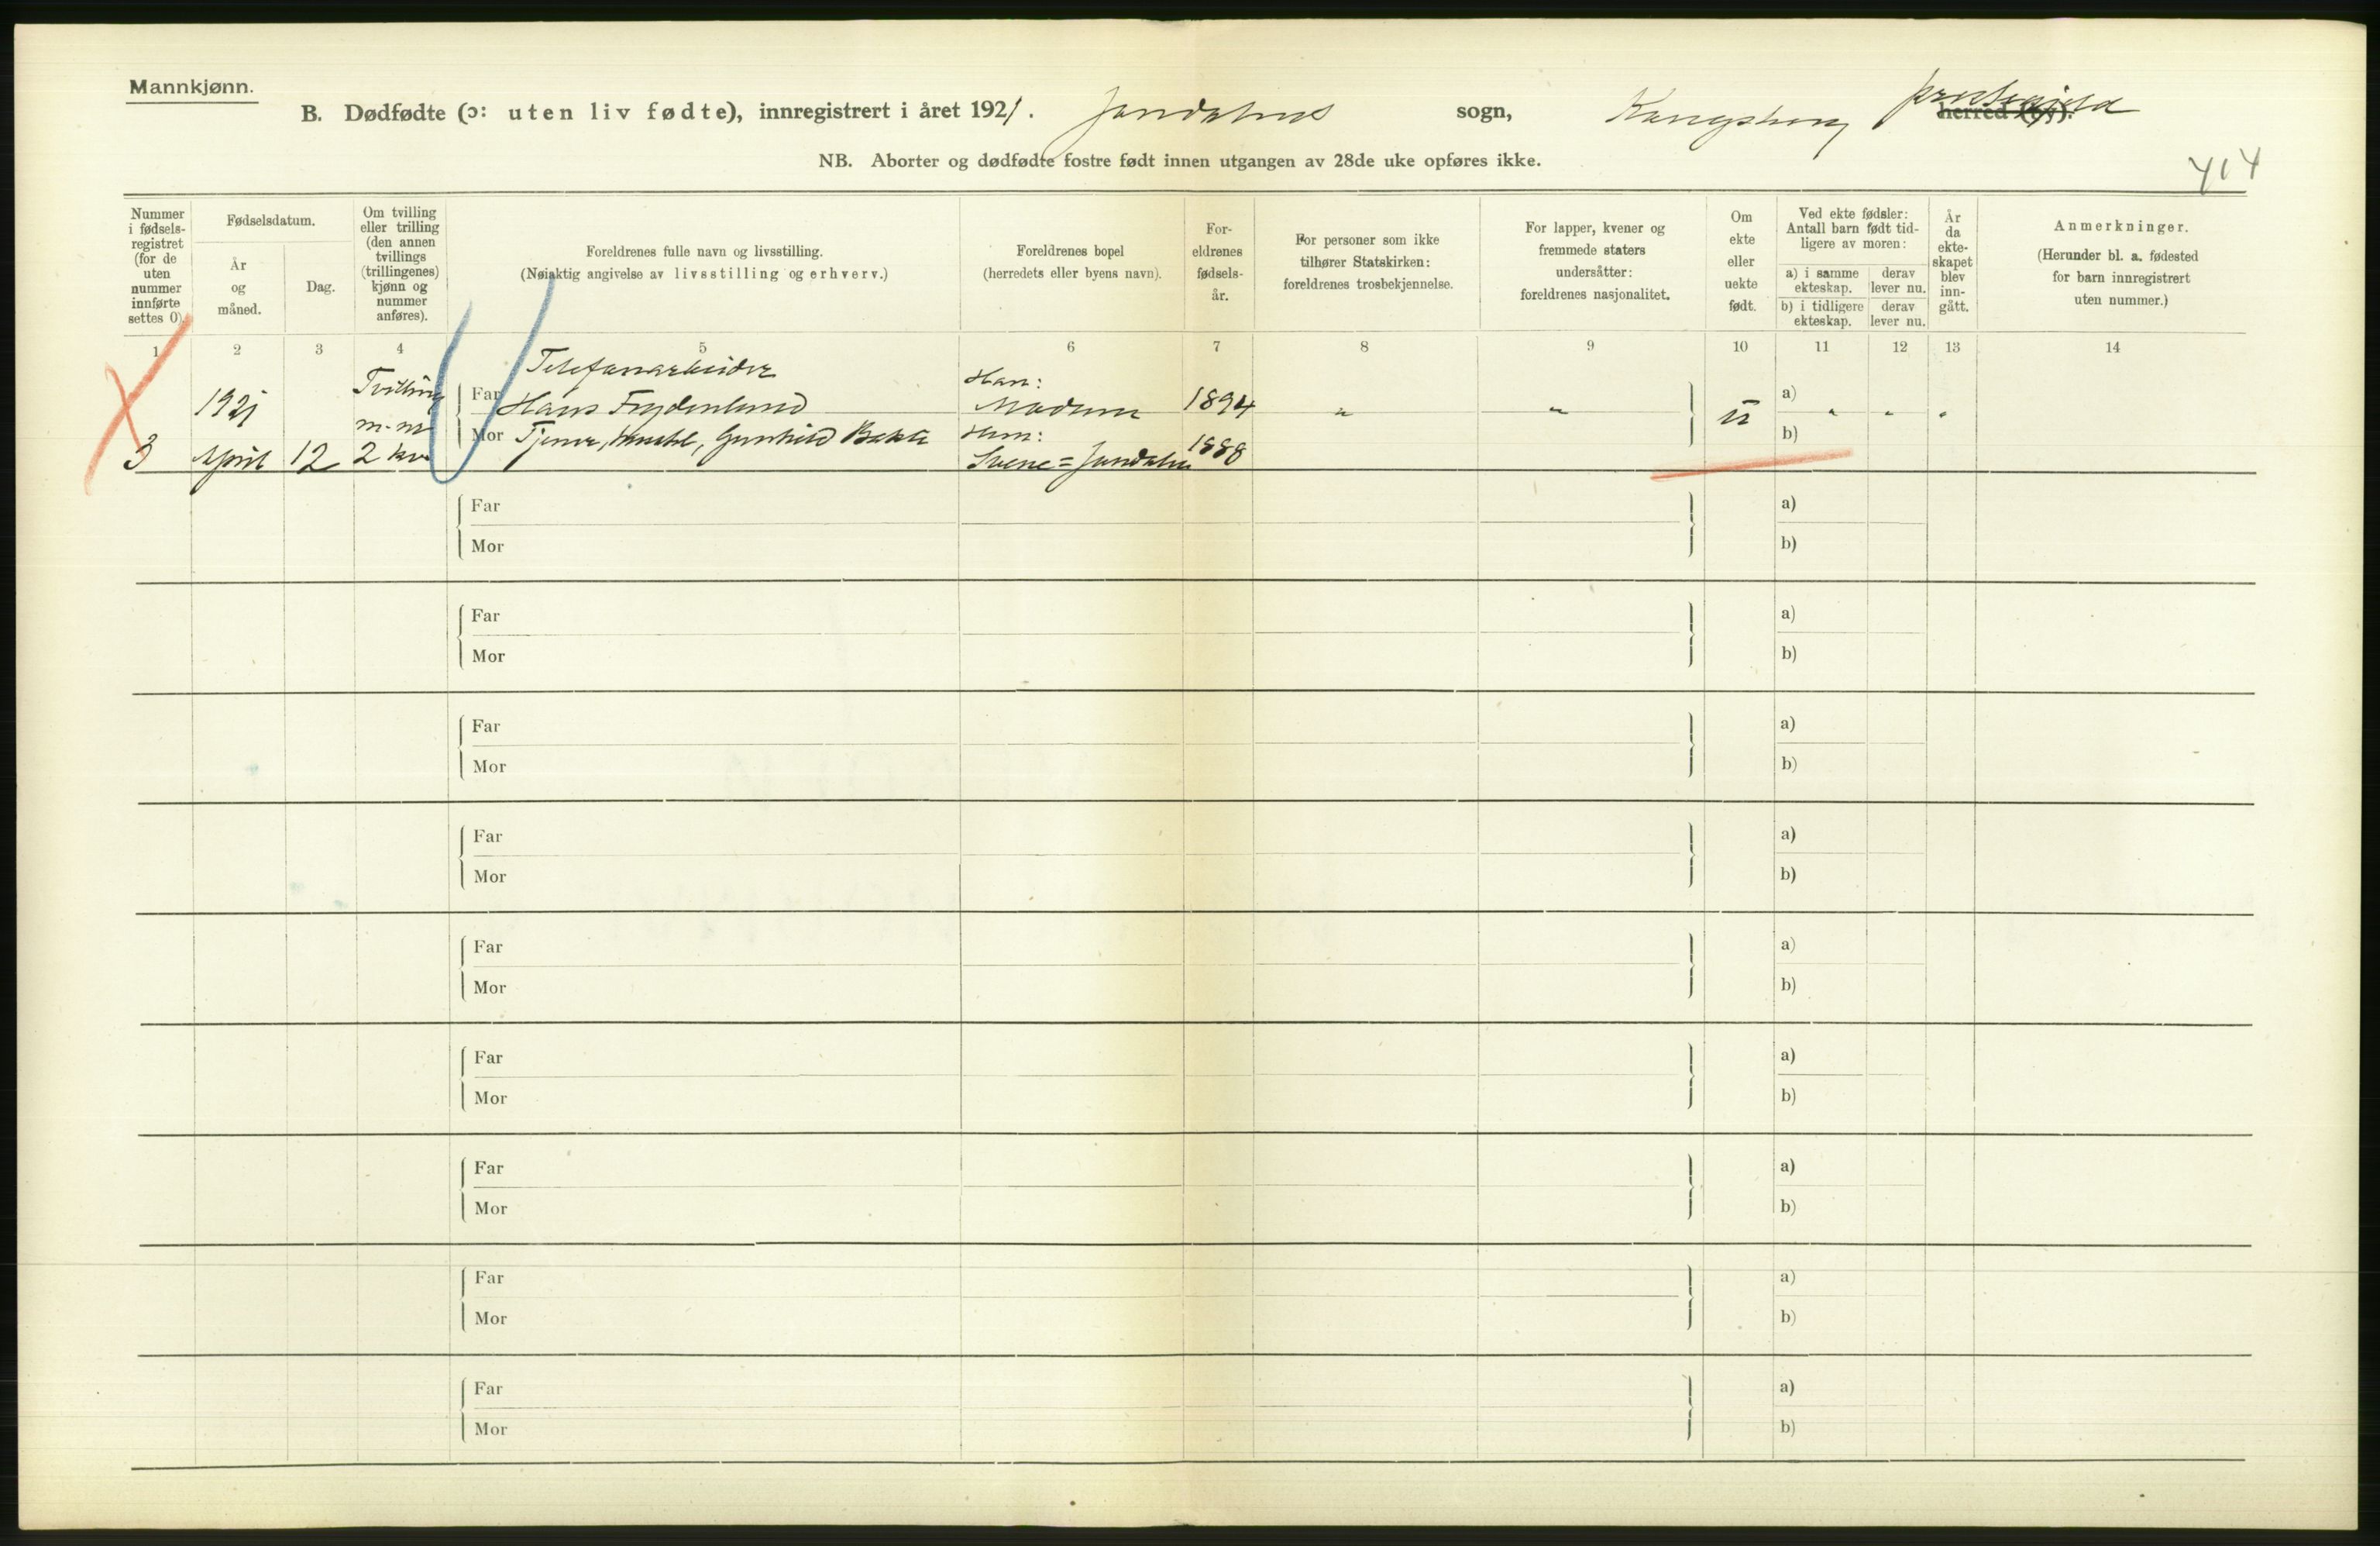 Mannkjønn.
B. Dødfødte (ɔ: uten liv fødte), innregistrert i året 1921. Jondalens sogn, Kongsberg prestegjeld herred (by).
NB. Aborter og dødfødte fostre født innen utgangen av 28de uke opføres ikke.
414
Nummer i fødsels-registret (for de uten nummer innførte settes 0).
Fødselsdatum.
År og måned.
Dag.
Om tvilling eller trilling (den annen tvillings (trillingenes) kjønn og nummer anføres).
Foreldrenes fulle navn og livsstilling.
(Nøiaktig angivelse av livsstilling og erhverv.)
Foreldrenes bopel
(herredets eller byens navn).
For-eldrenes fødsels-år.
For personer som ikke tilhører Statskirken: foreldrenes trosbekjennelse.
For lapper, kvener og fremmede staters undersåtter: foreldrenes nasjonalitet.
Om ekte eller uekte født.
Ved ekte fødsler:
Antall barn født tid-ligere av moren:
a) i samme ekteskap.
derav lever nu.
b) i tidligere ekteskap.
derav lever nu.
År da ekte-skapet blev inn-gått.
Anmerkninger.
(Herunder bl. a. fødested for barn innregistrert uten nummer.)
1 2 3 4 5 6 7 8 9 10 11 12 13 14
Telefonarbeider
Tvilling
Han:
1921
Far Hans Frydenlund
Modum
1894
"
"
u
a)
"
"
"
m. nr
Mor Tjener, Gunhild Bakke
Hun:
1888
b)
3 April 12 2 kv.
Svene = Jondalen
Far
a)
Mor
b)
Far
a)
Mor
b)
Far
a)
Mor
b)
Far
a)
Mor
b)
Far
a)
Mor
b)
Far
a)
Mor
b)
Far
a)
Mor
b)
Far
a)
Mor
b)
Far
a)
Mor
b)